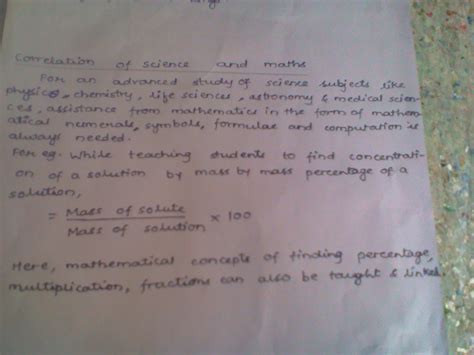 Correlation of science and maths
For an advanced study of science subjects like
physics, chemistry, life sciences, astronomy & medical scien-
ces, assistance from mathematics in the form of mathem-
atical numerals, symbols, formulae and computation is
always needed.
For eg. While teaching students to find concentrati-
on of a solution by mass by mass percentage of a
solution,
= Mass of solute / Mass of solution × 100
Here, mathematical concepts of finding percentage,
multiplication, fractions can also be taught & linked.